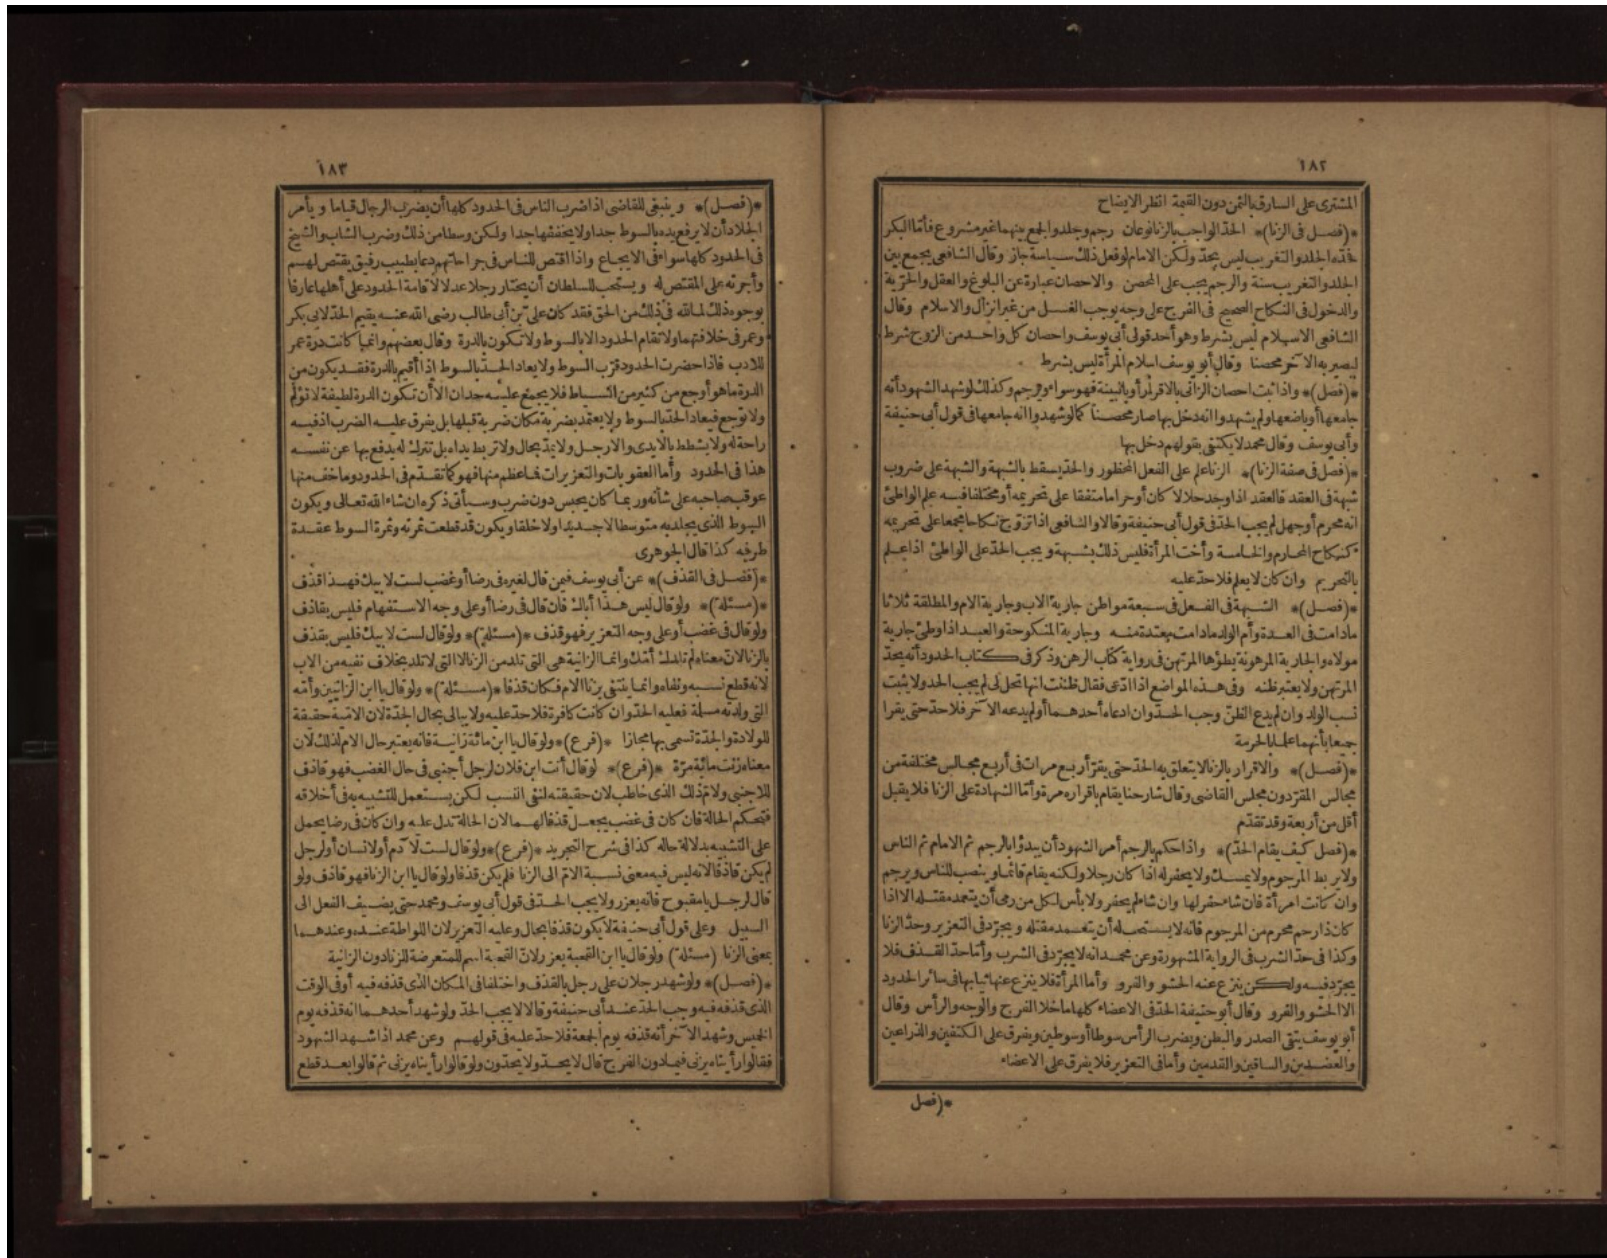 ١٨٢
المشترى على السارق بالثمن دون القيمة انظر الايضاح
*(فصل فى الزنا)* الحدّ الواجب بالزنا نوعان رجم وجلد والجمع بينهما غير مشروع فأمّا البكر
فحدّه الجلد والتغريب ليس بحدّ ولكن الامام لو فعل ذلك سياسة جاز وقال الشافعى يجمع بين
الجلد والتغريب سنة والرجم يجب على المحصن والاحصان عبارة عن البلوغ والعقل والحرّية
والدخول فى النكاح الصحيح فى الفرج على وجه يوجب الغسل من غير انزال والاسلام وقال
الشافعى الاسلام ليس بشرط وهو أحد قولى أبى يوسف واحصان كل واحد من الزوج شرط
ليصير به الآخر محصنا وقال أبو يوسف اسلام المرأة ليس بشرط
*(فصل)* واذا ثبت احصان الزانى بالاقرار أو بالبينة فهو سواء ويرجم وكذلك لو شهد الشهود أنه
جامعها أو باضعها ولم يشهدوا انه دخل بها صار محصنا كما لو شهدوا انه جامعها فى قول أبى حنيفة
وأبى يوسف وقال محمد لا يكتفى بقولهم دخل بها
*(فصل فى صفة الزنا)* الزنا علم على الفعل المحظور والحدّ يسقط بالشبهة والشبهة على ضروب
شبهة فى العقد فالعقد اذا وجد حلالا كان أو حراما متفقا على تحريمه أو مختلفا فيه علم الواطئ
انه محرم أو جهل لم يجب الحدّ فى قول أبى حنيفة وقالا والشافعى اذا تزوّج نكاحا مجمعا على تحريمه
كنكاح المحارم والخامسة وأخت المرأة فليس ذلك بشبهة ويجب الحدّ على الواطئ اذا علم
بالتحريم وان كان لا يعلم فلا حدّ عليه
*(فصل)* الشبهة فى الفعل فى سبعة مواطن جارية الاب وجارية الام والمطلقة ثلاثا
مادامت فى العدة وأم الولد مادامت معتدة منه وجارية المنكوحة والعبد اذا وطئ جارية
مولاه والجارية المرهونة يطؤها المرتهن فى رواية كتاب الرهن وذكر فى كتاب الحدود أنه يحدّ
المرتهن ولا يعتبر ظنه وفى هذه المواضع اذا ادّعى فقال ظننت انها تحل لى لم يجب الحد ولا يثبت
نسب الولد وان لم يدع الظنّ وجب الحدّ وان ادعاه أحدهما أو لم يدعه الآخر فلا حدّ حتى يقرا
جميعا بأنهما علما بالحرمة
*(فصل)* والاقرار بالزنا لا يتعلق به الحدّ حتى يقرّ أربع مرات فى أربع مجالس مختلفة من
مجالس المقرّ دون مجلس القاضى وقال شارحنا يقام باقراره مرة وأمّا الشهادة على الزنا فلا يقبل
أقل من أربعة وقد تقدّم
*(فصل كيف يقام الحدّ)* واذا حكم بالرجم أمر الشهود أن يبدؤا بالرجم ثم الامام ثم الناس
ولا يربط المرجوم ولا يمسك ولا يحفر له اذا كان رجلا ولكنه يقام قائما وينصب للناس ويرجم
وان كانت امرأة فان شاء حفر لها وان شاء لم يحفر ولا بأس لكل من رمى أن يتعمد مقتله الا اذا
كان ذا رحم محرم من المرجوم فانه لا يستحب له أن يتعمد مقتله ويجرّد فى التعزير وحدّ الزنا
وكذا فى حدّ الشرب فى الرواية المشهورة وعن محمد انه لا يجرّد فى الشرب وأمّا حدّ القذف فلا
يجرّد فيه ولكن ينزع عنه الحشو والفرو وأما المرأة فلا ينزع عنها ثيابها فى سائر الحدود
الا الحشو والفرو وقال أبو حنيفة الحدّ فى الاعضاء كلها ما خلا الفرج والوجه والرأس وقال
أبو يوسف يتقى الصدر والبطن ويضرب الرأس سوطا أو سوطين ويفرق على الكتفين والذراعين
والعضدين والساقين والقدمين وأما فى التعزير فلا يفرق على الاعضاء
*(فصل
١٨٣
*(فصل)* وينبغى للقاضى اذا ضرب الناس فى الحدود كلها أن يضرب الرجال قياما ويأمر
الجلاد أن لا يرفع يده بالسوط جدا ولا يخفضها جدا ولكن وسطا من ذلك وضرب الشاب والشيخ
فى الحدود كلها سواء فى الايجاع واذا اقتص للناس فى جراحاتهم دعا بطبيب رفيق يقتص لهم
وأجرته على المقتص له ويستحب للسلطان أن يختار رجلا عدلا لاقامة الحدود على أهلها عارفا
بوجوه ذلك لما لله فى ذلك من الحق فقد كان على بن أبى طالب رضى الله عنه يقيم الحدّ لابى بكر
وعمر فى خلافتهما ولا تقام الحدود الا بالسوط ولا تكون بالدرة وقال بعضهم وانما كانت درّة عمر
للادب فاذا حضرت الحدود قرّب السوط ولا يعاد الحدّ بالسوط اذا أقيم بالدرة فقد يكون من
الدرة ما هو أوجع من كثير من السياط فلا يجمع عليه حدان الا أن تكون الدرة لطيفة لا تؤلم
ولا توجع فيعاد الحدّ بالسوط ولا يعتمد بضربة مكان ضربة قبلها بل يفرق عليه الضرب اذ فيه
راحة له ولا يشطط بالايدى والارجل ولا يمدّ بحال ولا تربط يداه بل تترك له يدفع بها عن نفسه
هذا فى الحدود وأما العقوبات والتعزيرات فما عظم منها فهو كما تقدّم فى الحدود وما خف منها
عوقب صاحبه على شأنه وربما كان يحبس دون ضرب وسيأتى ذكره ان شاء الله تعالى ويكون
السوط الذى يجلد به متوسطا لا جديدا ولا خلقا ويكون قد قطعت ثمرته وثمرة السوط عقدة
طرفه كذا قال الجوهرى
*(فصل فى القذف)* عن أبى يوسف فيمن قال لغيره فى رضا أو غضب لست لابيك فهذا قذف
*(مسئلة)* ولو قال ليس هذا أباك فان قال فى رضا أو على وجه الاستفهام فليس بقاذف
ولو قال فى غضب أو على وجه التعزير فهو قذف *(مسئلة)* ولو قال لست لابيك فليس بقذف
بالزنا لانّ معناه لم تلدك أمّك وانما الزانية هى التى تلد من الزنا لا التى لا تلد بخلاف نفيه من الاب
لانه قطع نسبه ونفاه وانما ينتفى بزنا الام فكان قذفا *(مسئلة)* ولو قال يا ابن الزانيين وأمّه
التى ولدته مسلمة فعليه الحدّ وان كانت كافرة فلا حدّ عليه ولا يبالى بحال الجدّة لان الامّ حقيقة
للوالدة والجدّة تسمى بها مجازا *(فرع)* ولو قال يا ابن مائة زانية فانه يعتبر حال الام لذلك لان
معناه زنت مائة مرّة *(فرع)* لو قال أنت ابن فلان لرجل أجنبى فى حال الغضب فهو قاذف
للاجنبى ولامّ ذلك الذى خاطب لان حقيقته لنفى النسب لكن يستعمل للتشبيه به فى أخلاقه
فتحكم الحالة فان كان فى غضب يجعل قذفا لهما لان الحالة تدل عليه وان كان فى رضا يحمل
على التشبيه بدلالة حاله كذا فى شرح التجريد *(فرع)* ولو قال لست لآدم أو لانسان أو لرجل
لم يكن قاذفا لانه ليس فيه معنى نسبة الامّ الى الزنا فلم يكن قذفا ولو قال يا ابن الزنا فهو قاذف ولو
قال لرجل يا مقبوح فانه يعزر ولا يجب الحدّ فى قول أبى يوسف ومحمد حتى يضيف الفعل الى
السبيل وعلى قول أبى حنيفة لا يكون قذفا بحال وعليه التعزير لان اللواطة عنده وعندهما
بمعنى الزنا (مسئلة) ولو قال يا ابن القحبة يعزر لانّ القحبة اسم للمتعرضة للزنا دون الزانية
*(فصل)* ولو شهد رجلان على رجل بالقذف واختلفا فى المكان الذى قذفه فيه أو فى الوقت
الذى قذفه فيه وجب الحدّ عند أبى حنيفة وقالا لا يجب الحدّ ولو شهد أحدهما انه قذفه يوم
الخميس وشهد الآخر أنه قذفه يوم الجمعة فلا حدّ عليه فى قولهم وعن محمد اذا شهد الشهود
فقالوا رأيناه يزنى فيما دون الفرج قال لا يحدّ ولا يحدّون ولو قالوا رأيناه يزنى ثم قالوا بعد قطع